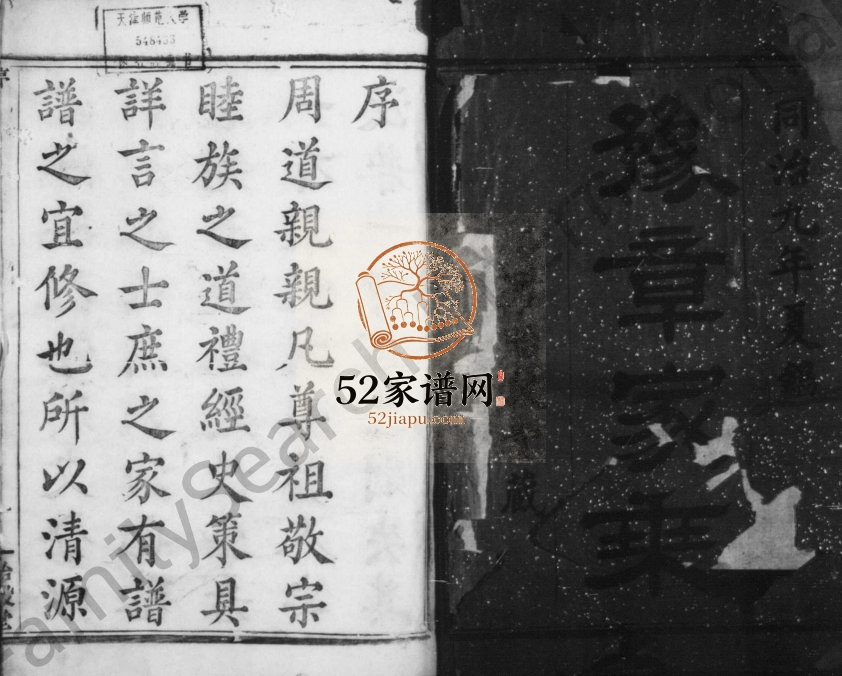 同治九年夏
豫章家乘
藏
序
周道親親凡尊祖敬宗
睦族之道禮經史策具
詳言之士庶之家有譜
譜之宜修也所以清源
天津师范大学
548433
52家谱网
52jiapu.com
FamilySearch